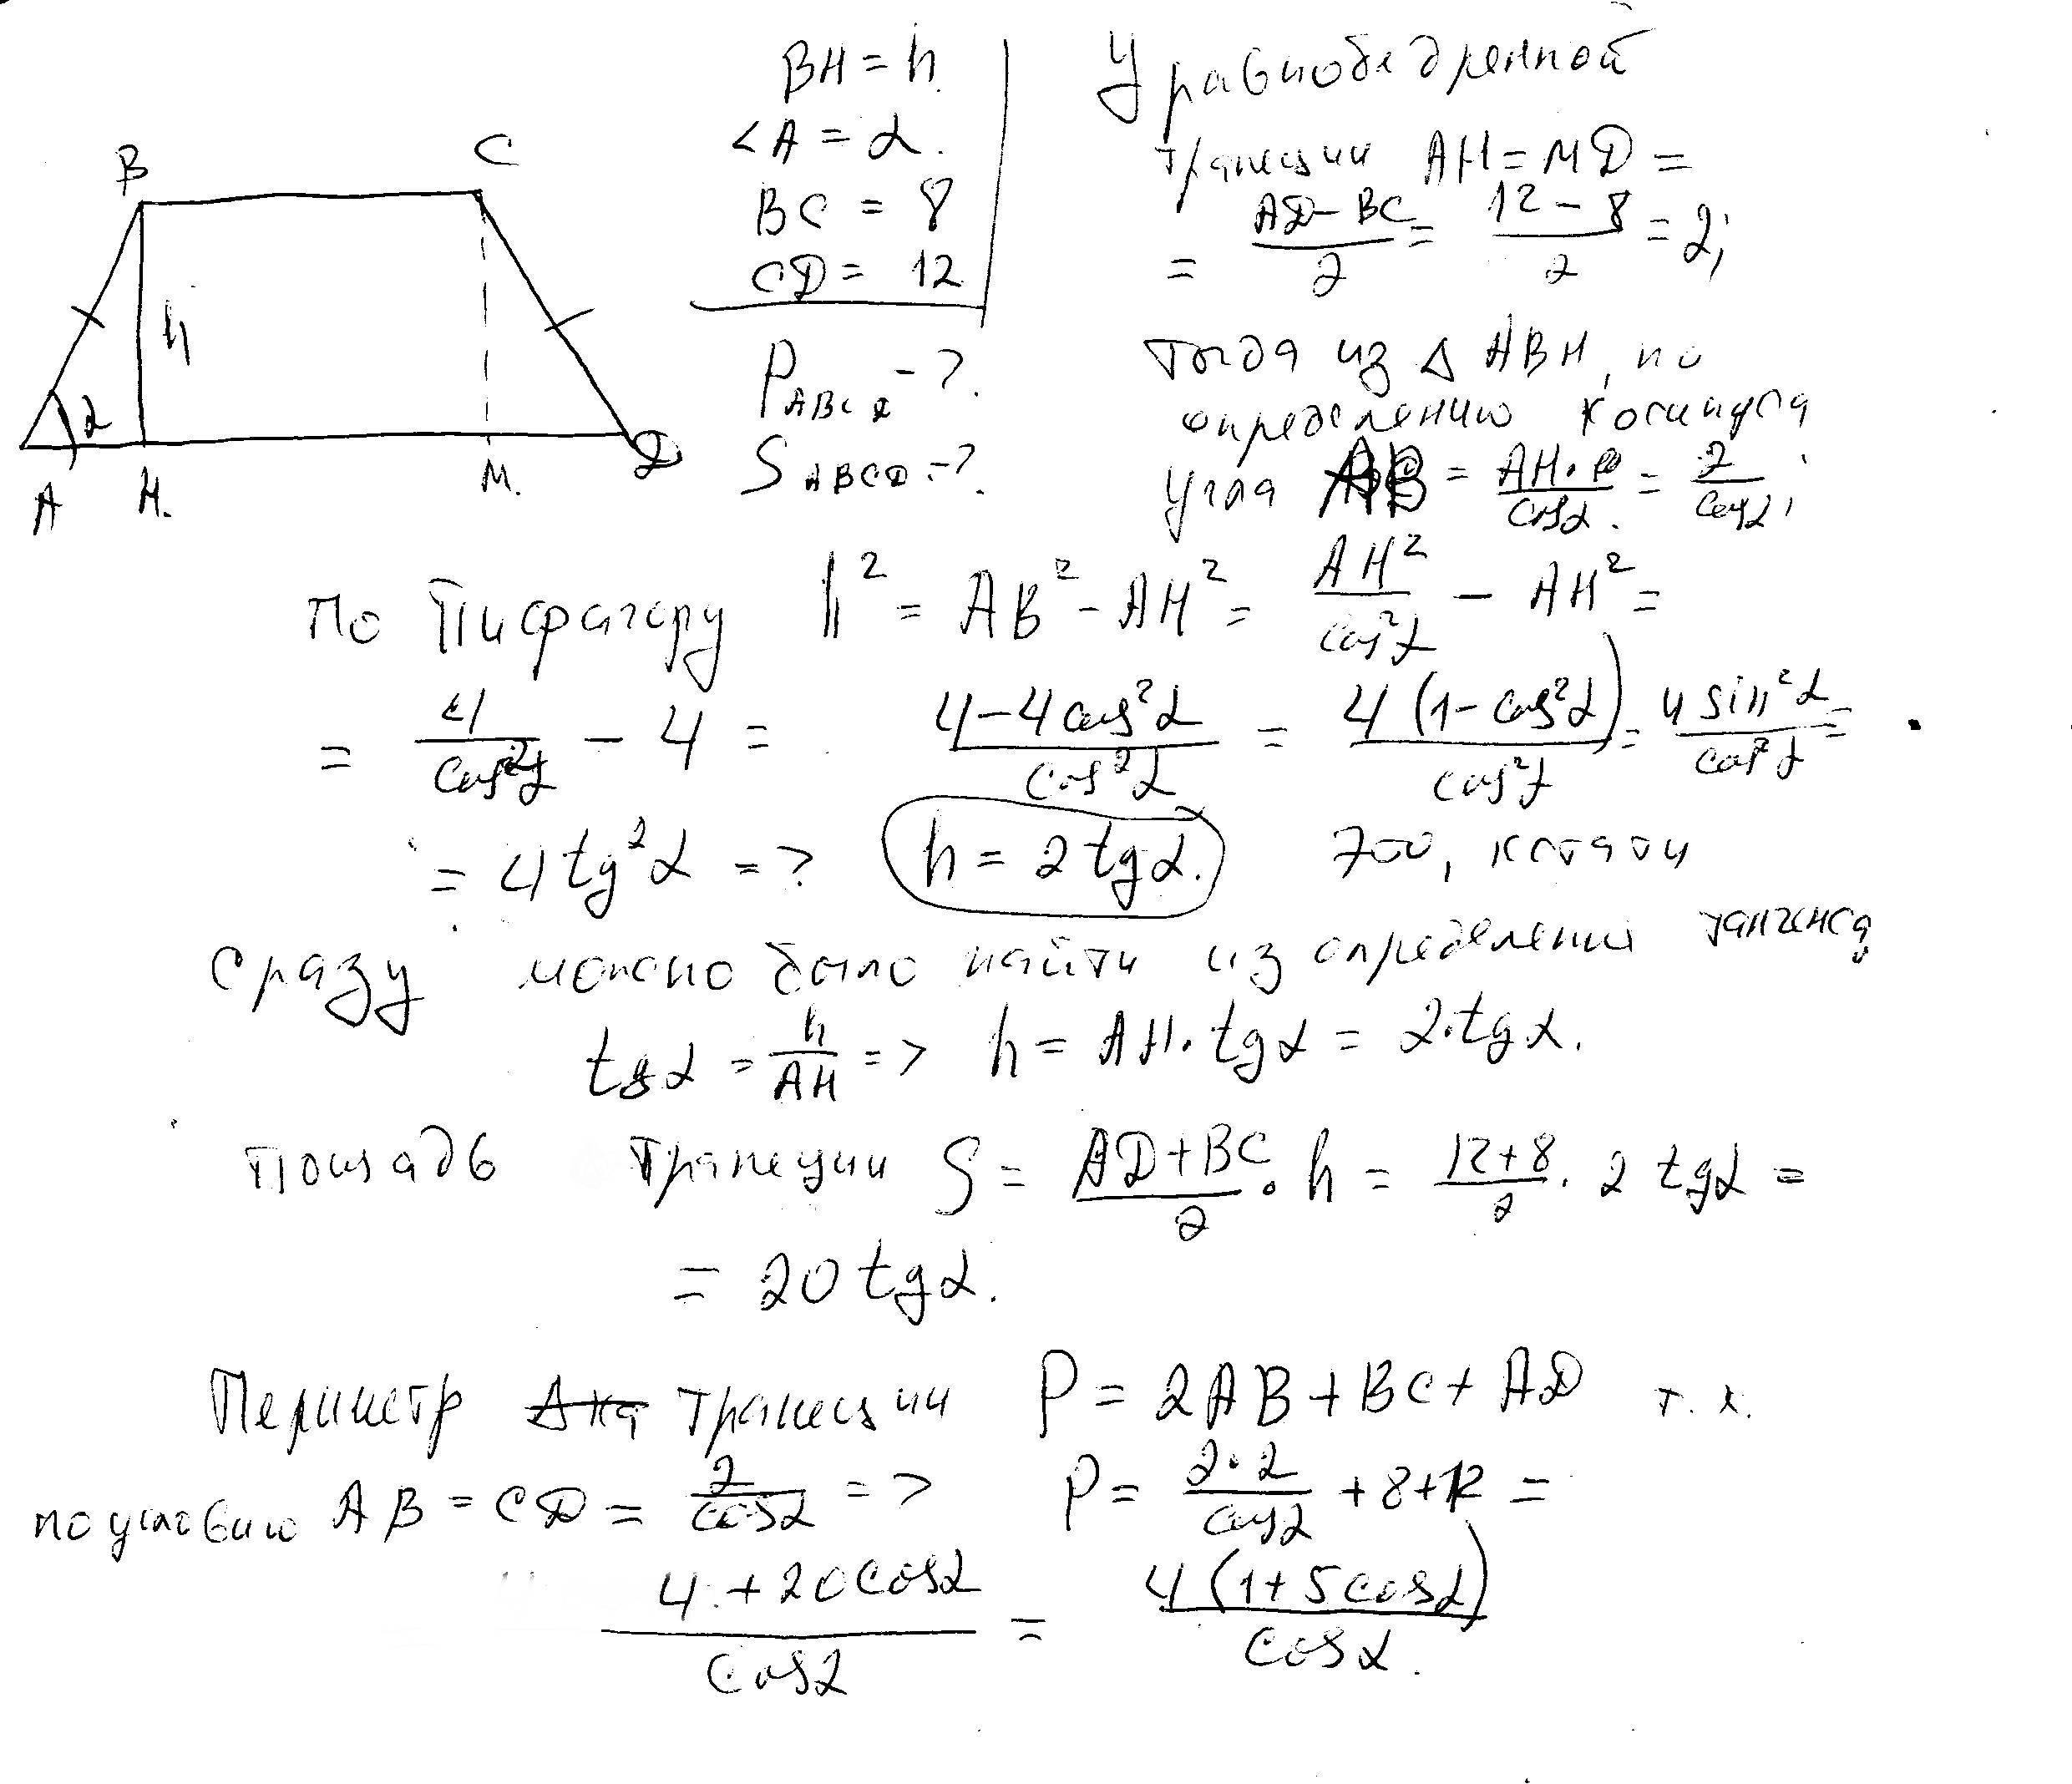 B
C
h
α
A
H.
M.
D
BH = h.
∠A = α.
BC = 8
CD = 12
P ABCD - ?.
S ABCD - ?.
У равнобедренной
трапеции AH = MD =
= (AD - BC)/2 = (12 - 8)/2 = 2;
тогда из Δ ABH, по
определению косинуса
угла AB = AH/cosα. = 2/cosα;
по Пифагору h² = AB² - AH² = AH²/cos²α - AH² =
= 4/cos²α - 4 = (4 - 4cos²α)/cos²α = 4(1 - cos²α)/cos²α = 4 sin²α/cos²α =
= 4 tg²α => h = 2 tgα. это, кстати
сразу можно было найти из определения тангенса,
tgα = h/AH => h = AH · tgα = 2 · tgα.
Площадь трапеции S = (AD + BC)/2 · h = (12 + 8)/2 · 2 tgα =
= 20 tgα.
Периметр трапеции P = 2AB + BC + AD т.к.
по условию AB = CD = 2/cosα => P = 2·2/cosα + 8 + 12 =
(4 + 20cosα)/cosα = 4(1 + 5cosα)/cosα.